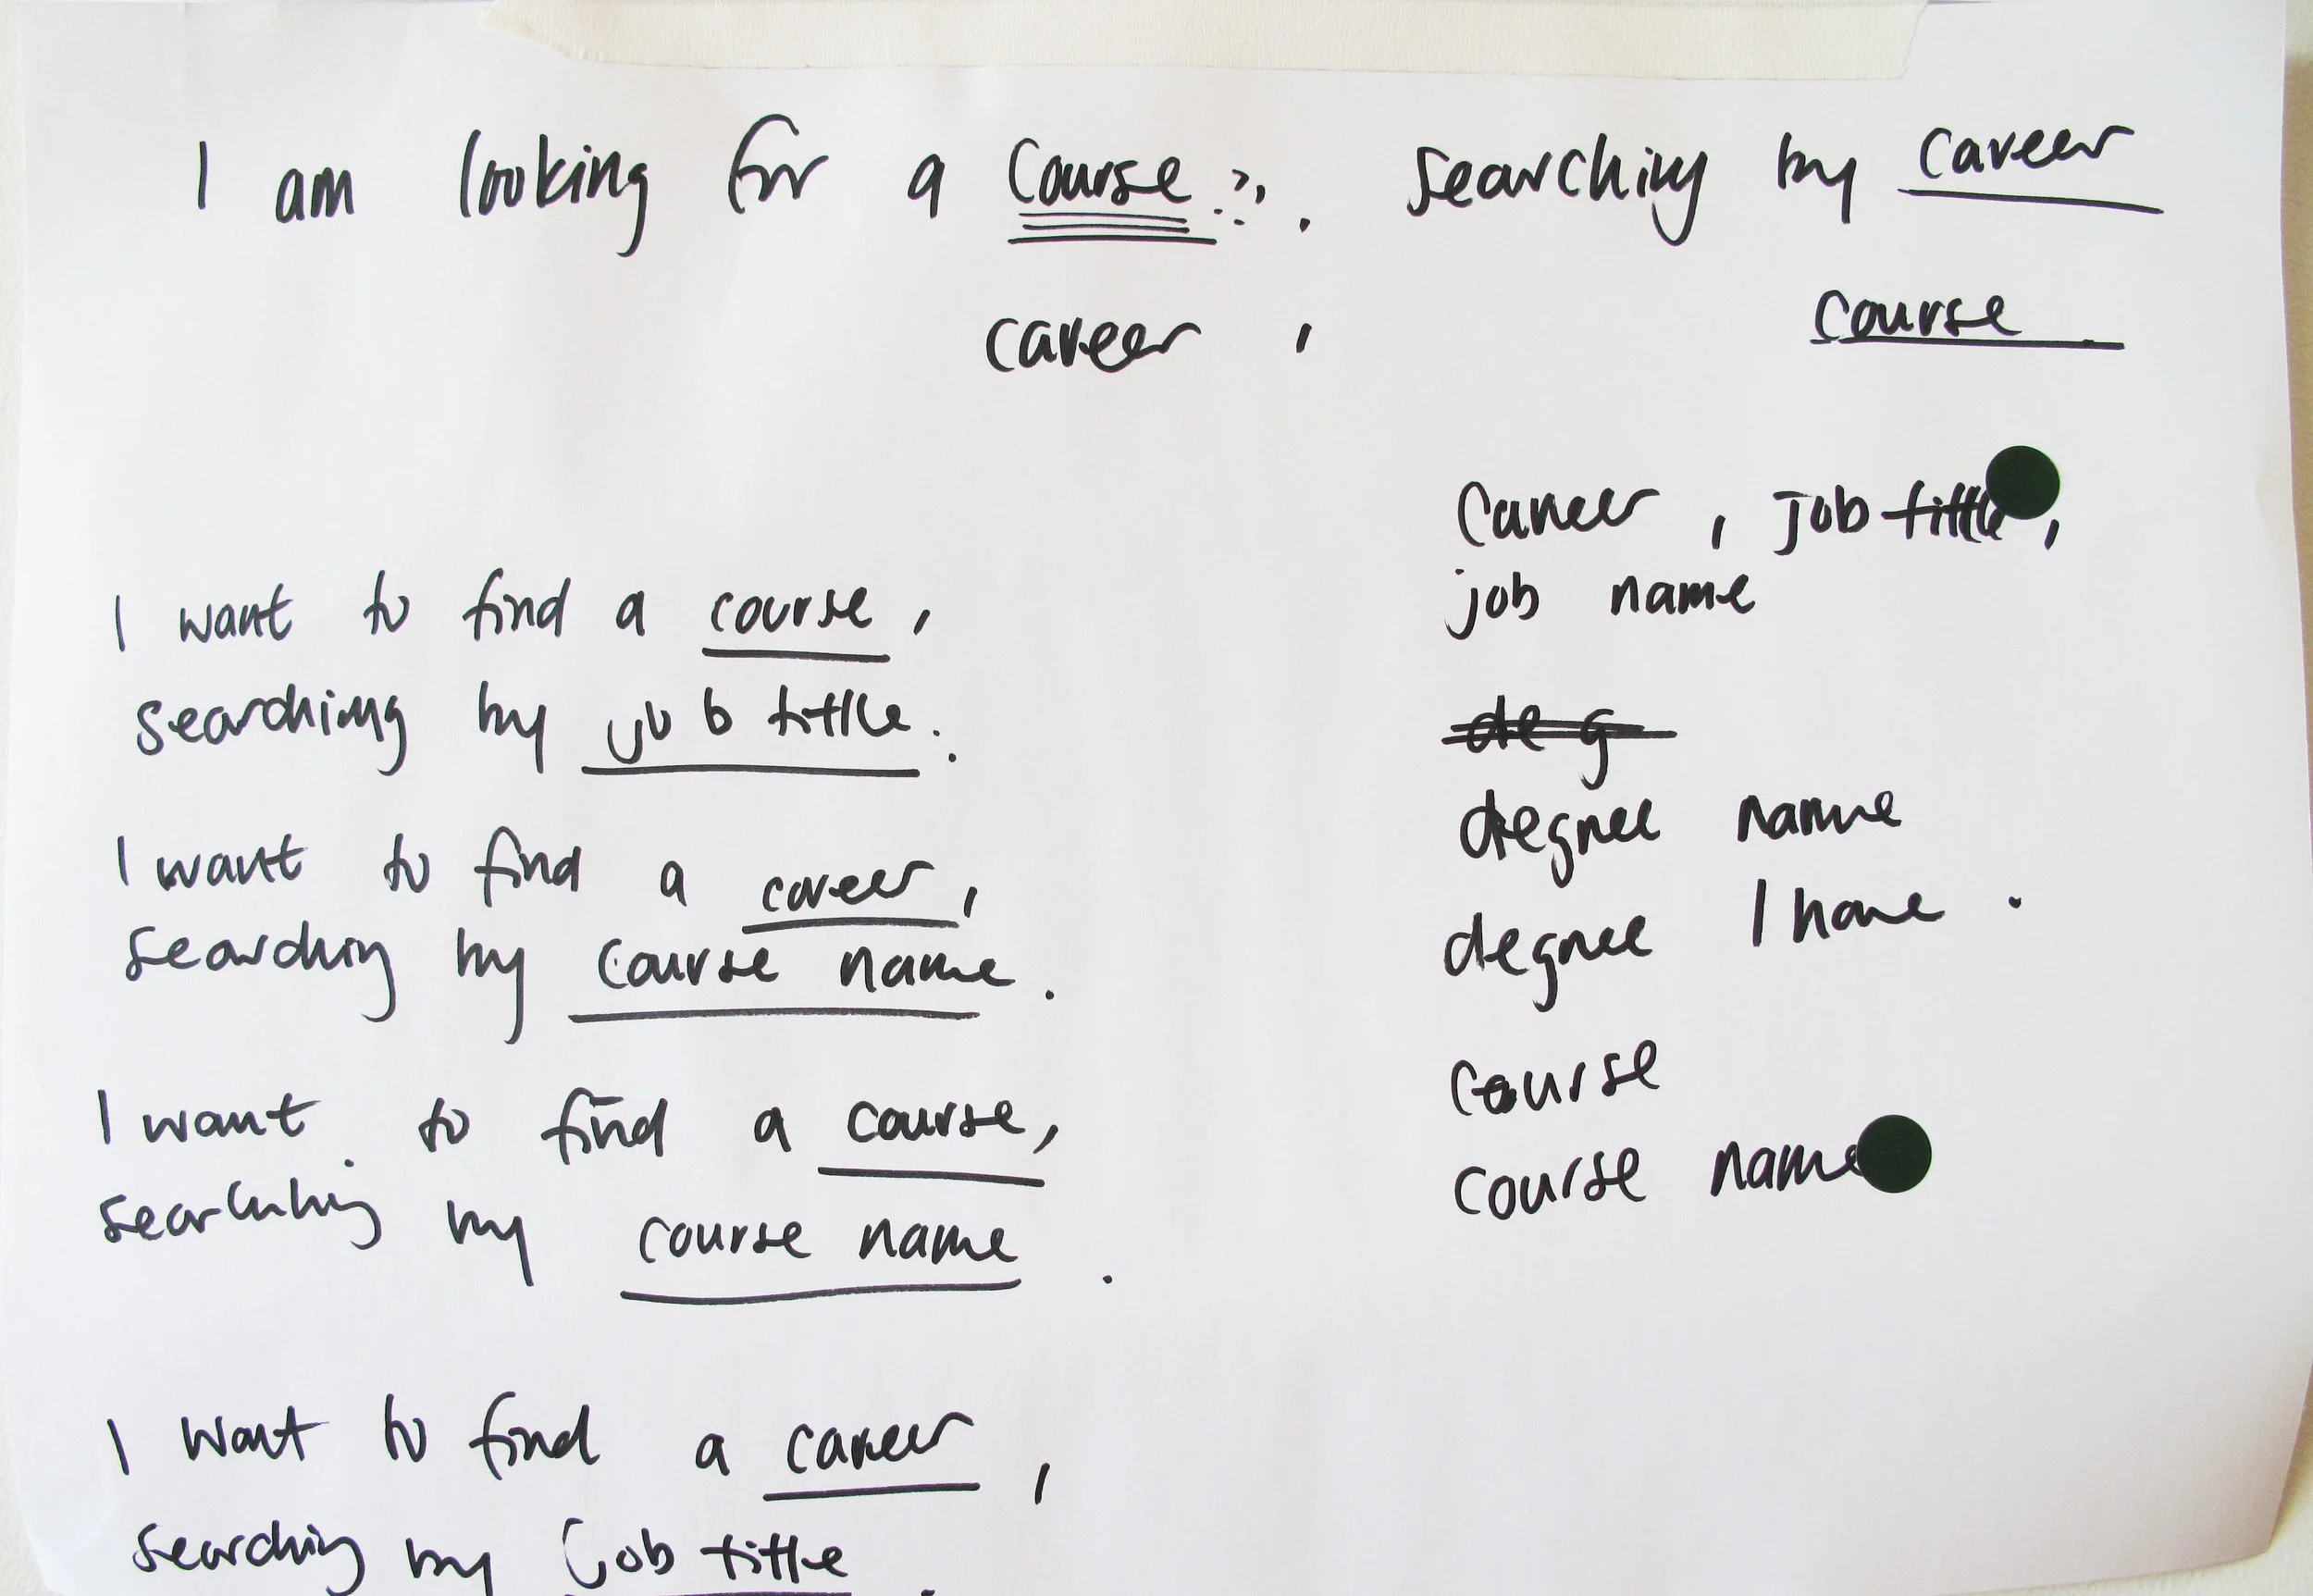 I am looking for a course ??. searching by career
career , course
career , job title ,
job name
I want to find a course ,
searching by job title .
deg
degree name
I want to find a career ,
degree I have .
searching by course name .
course
I want to find a course ,
course name
searching by course name .
I want to find a career ,
searching by job title .